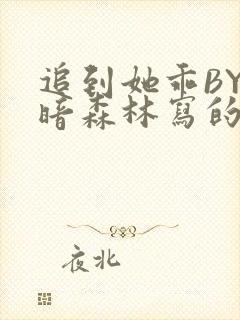 追到她乖BY
暗森林寫的
夜北